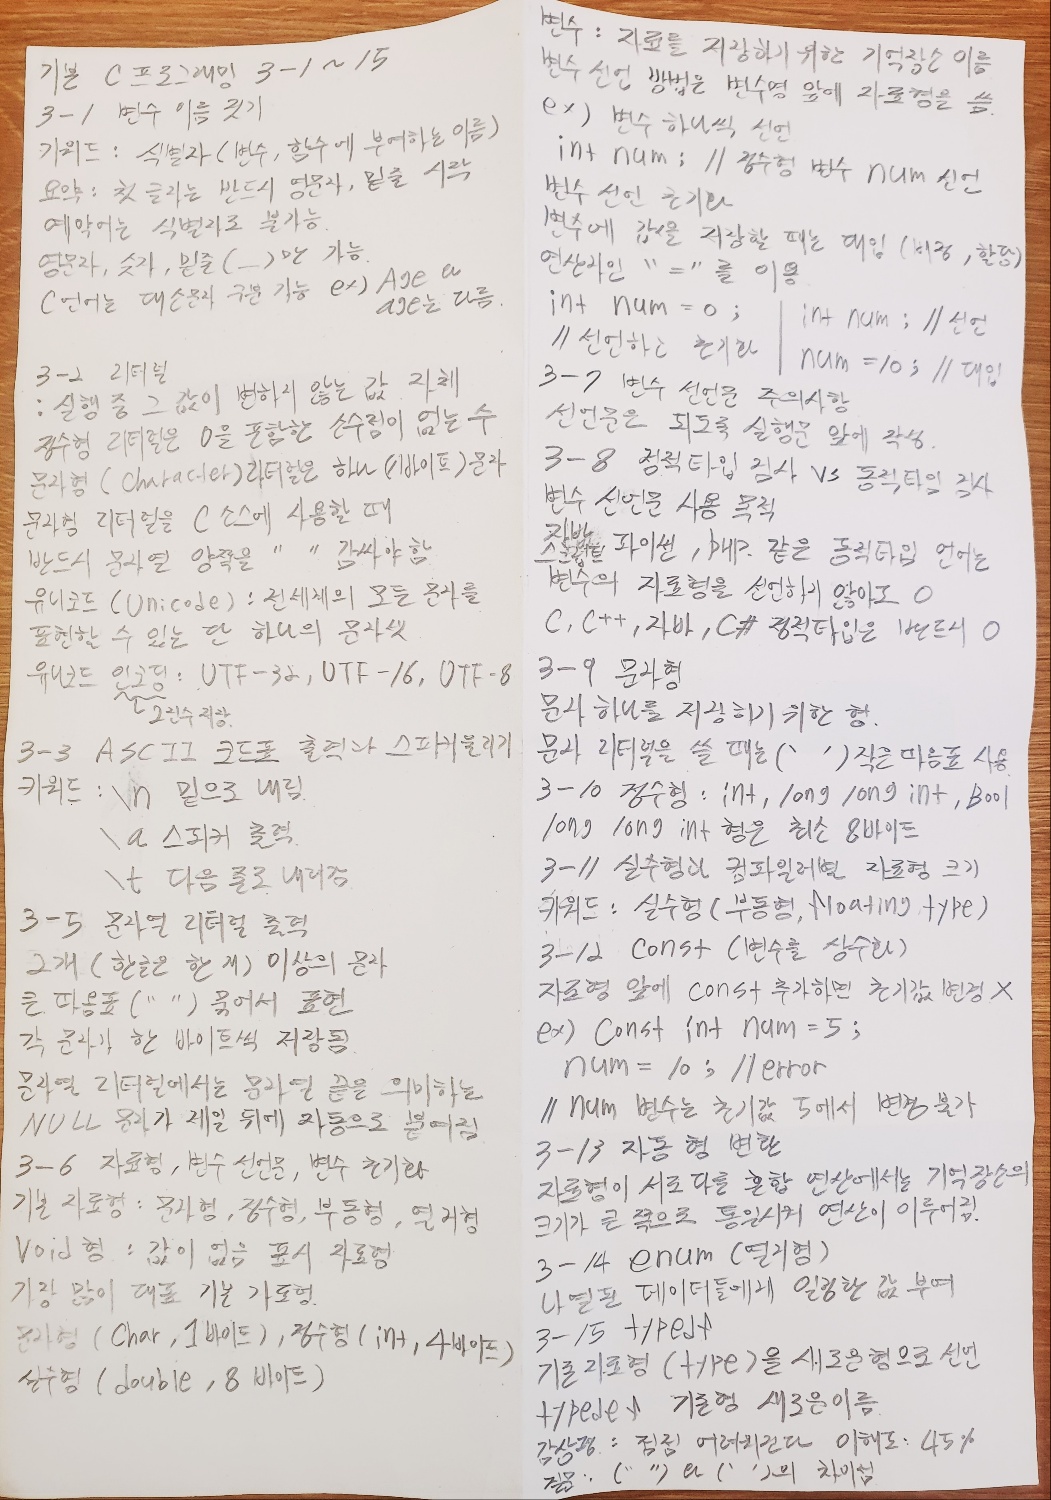 기본 C 프로그래밍 3-1 ~ 15
3-1 변수 이름 짓기
키워드 : 식별자 (변수, 함수에 부여하는 이름)
요약 : 첫 글자는 반드시 영문자, 밑줄 시작
예약어는 식별자로 불가능.
영문자, 숫자, 밑줄(_)만 가능.
C언어는 대소문자 구분 가능 ex) Age와
age는 다름.
3-2 리터럴
: 실행 중 그 값이 변하지 않는 값 자체
정수형 리터럴은 0을 포함한 소수점이 없는 수
문자형 (Character) 리터럴은 하나 (1바이트) 문자
문자형 리터럴을 C 소스에 사용할 때
반드시 문자열 양쪽을 " " 감싸야 함
유니코드 (Unicode) : 전세계의 모든 문자를
표현할 수 있는 단 하나의 문자셋
유니코드 인코딩 : UTF-32, UTF-16, UTF-8
2진수 저장.
3-3 ASCII 코드표 출력과 스피커 울리기
키워드 : \n 밑으로 내림
\a 스피커 출력.
\t 다음 줄로 내려감
3-5 문자열 리터럴 출력
2개 (한글은 한 개) 이상의 문자
큰 따옴표 (" ") 묶어서 표현
각 문자가 한 바이트씩 저장됨
문자열 리터럴에서는 문자열 끝을 의미하는
NULL 문자가 제일 뒤에 자동으로 붙여짐
3-6 자료형, 변수 선언문, 변수 초기화
기본 자료형 : 문자형, 정수형, 부동형, 열거형
Void 형 : 값이 없음 표시 자료형
가장 많이 대표 기본 자료형.
문자형 (Char, 1바이트), 정수형 (int, 4바이트)
실수형 (double, 8 바이트)
변수 : 자료를 저장하기 위한 기억장소 이름
변수 선언 방법은 변수명 앞에 자료형을 씀.
ex) 변수 하나씩 선언
int num ; // 정수형 변수 num 선언
변수 선언 초기화
변수에 값을 저장할 때는 대입 (배정, 할당)
연산자인 "=" 를 이용
int num = 0 ;
// 선언하고 초기화
int num ; // 선언
num = 10 ; // 대입
3-7 변수 선언문 주의사항
선언문은 되도록 실행문 앞에 작성.
3-8 정적타입 검사 VS 동적타입 검사
변수 선언문 사용 목적
자바
스크립트 파이썬, PHP. 같은 동적타입 언어는
변수의 자료형을 선언하지 않아도 O
C, C++, 자바, C# 정적타입은 반드시 O
3-9 문자형
문자 하나를 저장하기 위한 형.
문자 리터럴을 쓸 때는 (' ') 작은 따옴표 사용
3-10 정수형 : int, long long int, Bool
long long int 형은 최소 8바이트
3-11 실수형과 컴파일러별 자료형 크기
키워드 : 실수형 (부동형, floating type)
3-12 const (변수를 상수화)
자료형 앞에 const 추가하면 초기값 변경 X
ex) Const int num = 5 ;
num = 10 ; // error
// num 변수는 초기값 5에서 변경 불가
3-13 자동 형 변환
자료형이 서로 다를 혼합 연산에서는 기억장소의
크기가 큰 쪽으로 통일시켜 연산이 이루어짐.
3-14 enum (열거형)
나열된 데이터들에게 일정한 값 부여
3-15 typedef
기존 자료형 (type)을 새로운형으로 선언
typedef 기존형 새로운이름.
감상평 : 점점 어려워진다 이해도 : 45%
질문 : (" ")와 (' ')의 차이점